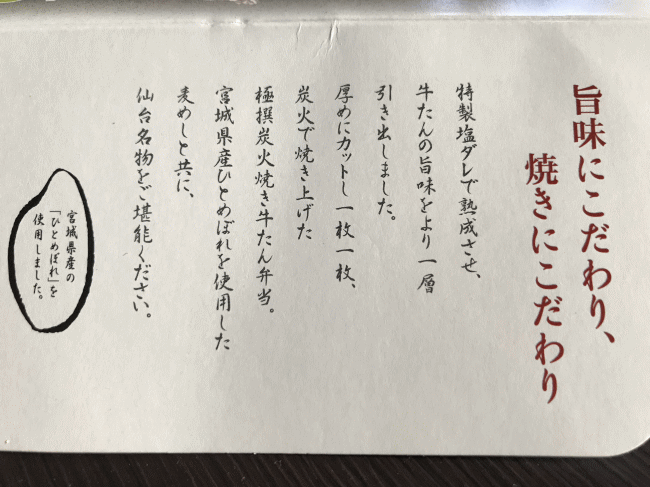 旨味にこだわり、
焼きにこだわり
特製塩ダレで熟成させ、
牛たんの旨味をより一層
引き出しました。
厚めにカットし一枚一枚、
炭火で焼き上げた
極撰炭火焼き牛たん弁当。
宮城県産ひとめぼれを使用した
麦めしと共に、
仙台名物をご堪能ください。
宮城県産の
「ひとめぼれ」を
使用しました。